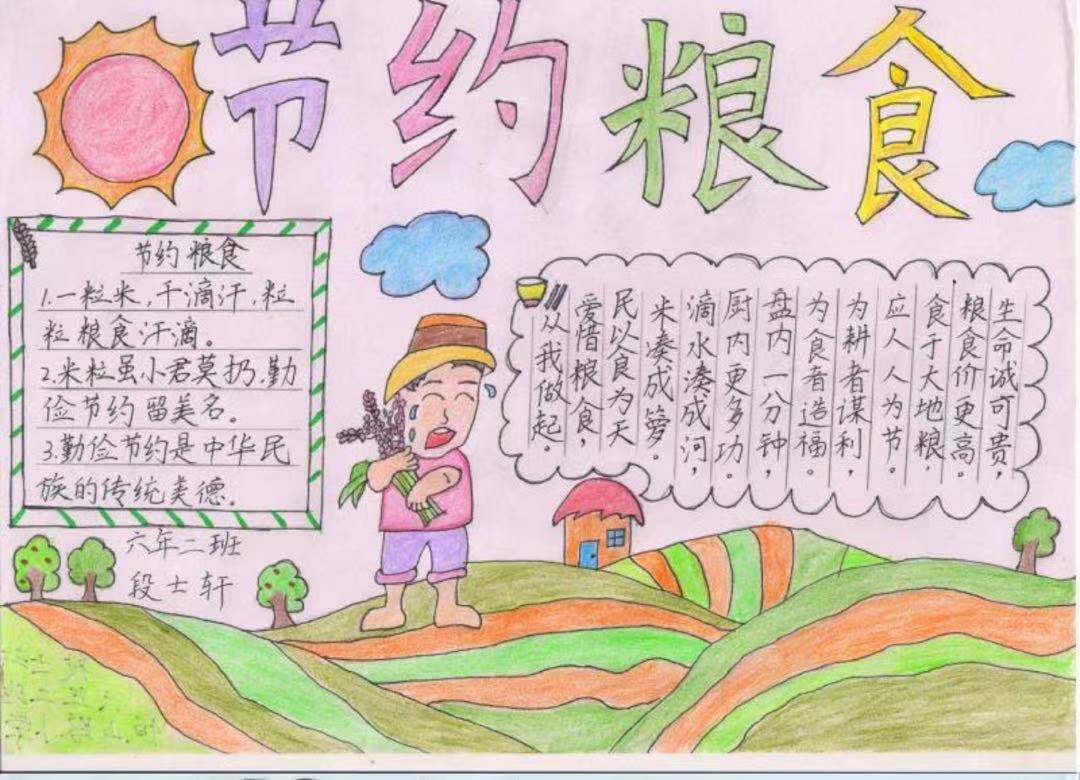 节约粮食
节约粮食
1.一粒米,千滴汗,粒
粒粮食汗滴。
2.米粒虽小君莫扔,勤
俭节约留美名。
3.勤俭节约是中华民
族的传统美德.
六年二班
段士轩
生命诚可贵,
粮食价更高。
食于大地粮,
应人人为节。
为耕者谋利,
为食者造福。
盘内一分钟,
厨内更多功。
滴水凑成河,
米凑成箩。
民以食为天
爱惜粮食,
从我做起。